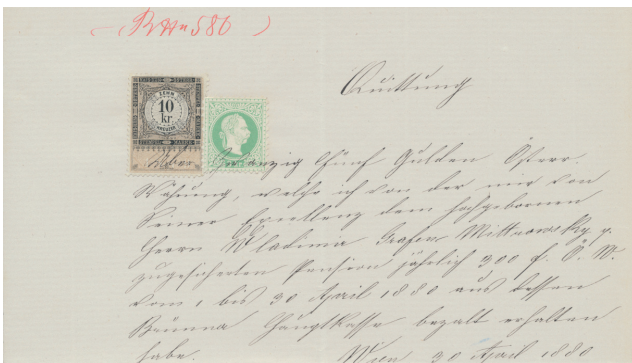 580
Quittung
ZEHN
10
kr.
KREUZER
Über Zwanzig fünf Gulden Österr.
Währung, welche ich von der mir von
Seiner Excellenz dem hochgebornen
Herrn Wladimir Grafen Mittrowsky
zugesicherten Pension jährlich 300 f. Ö. W.
vom 1 bis 30 April 1880 aus dessen
Brünner Hauptkasse bezalt erhalten
habe. Wien 30 April 1880